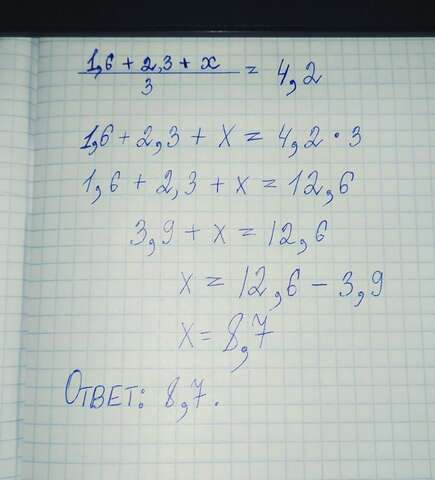 1,6 + 2,3 + x / 3 = 4,2
1,6 + 2,3 + x = 4,2 · 3
1,6 + 2,3 + x = 12,6
3,9 + x = 12,6
x = 12,6 - 3,9
x = 8,7
Ответ: 8,7.